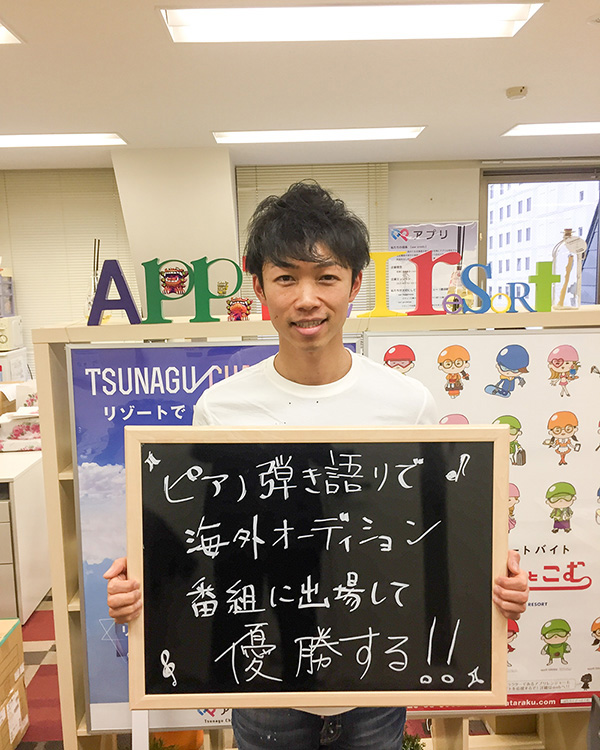 アプリ
APPLI ResORt
TSUNAGU CH
リゾートで
ートバイト
とこむ
RESORT
ataraku.com
Tsunagu Ch
ピアノ弾き語りで
海外オーディション
番組に出場して
優勝する!!